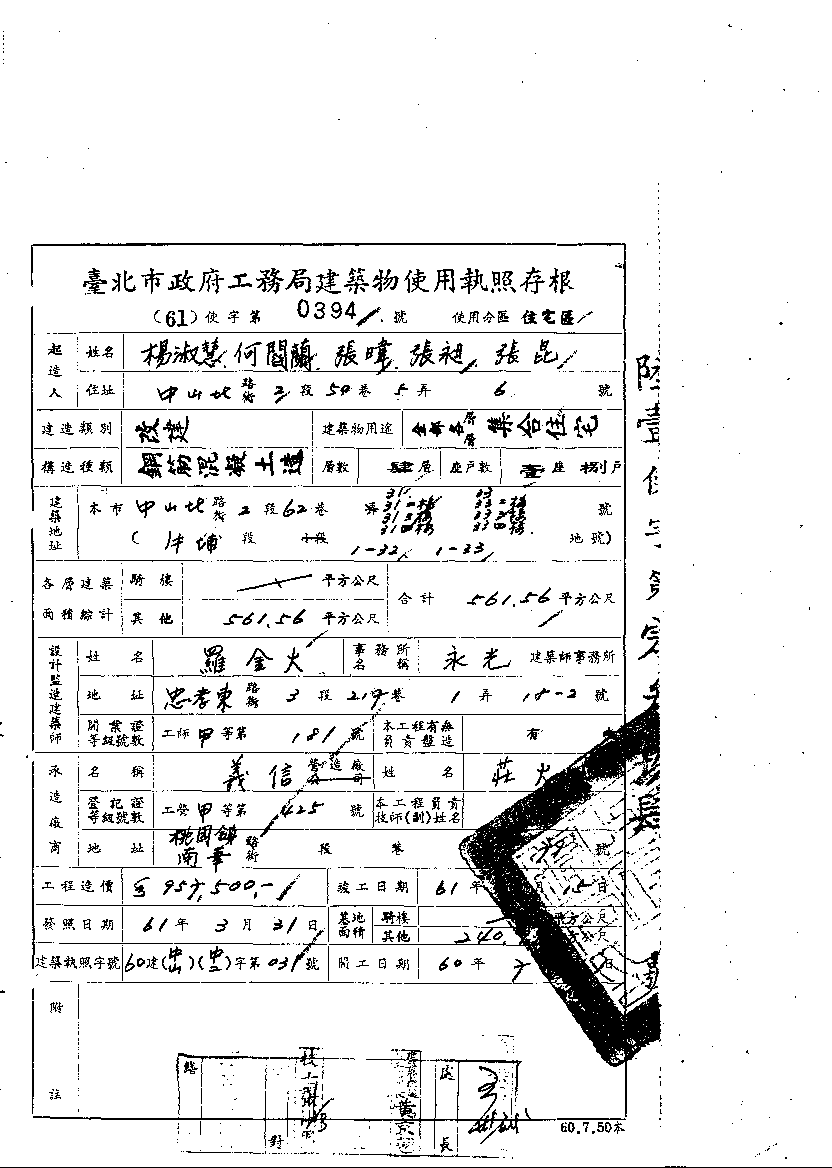 臺北市政府工務局建築物使用執照存根
(61)使字第 0394 號 使用分區 住宅區
起造人 姓名 楊淑慧 何閻蘭 張暐 張昶 張昆
住址 中山北 路街 2 段 50 巷 5 弄 6 號
建造類別 改建 建築物用途 層層 集合住宅
構造種類 鋼筋混凝土造 層數 肆層 座戶數 壹座 捌戶
建築地址 本市 中山北 路街 2 段 62 巷 弄 31. 31二樓 31三樓 31四樓 33 33二樓 33三樓 33四樓 號
( 牛埔 段 小段 1-32, 1-33 地號)
各層建築面積綜計 騎樓 平方公尺 合計 561.56 平方公尺
其他 561.56 平方公尺
設計監造建築師 姓名 羅金火 事務所名稱 永光 建築師事務所
地址 忠孝東 路街 3 段 217 巷 1 弄 18-2 號
開業證等級號數 工師 甲 等第 181 號 本工程有無負責監造 有
承造廠商 名稱 義信 營造廠公司 姓名 莊火
登記證等級號數 工營 甲 等第 425 號 本工程負責技師(副)姓名
地址 桃園鎮南華 路街 段 巷 號
工程造價 957,500.- 竣工日期 61 年 月 15 日
發照日期 61 年 3 月 31 日 基地面積 騎樓 平方公尺
其他 240. 公尺
建築執照字號 60建(中山)(中二)字第 031 號 開工日期 60 年 日
附註
對
處長
60.7.50本